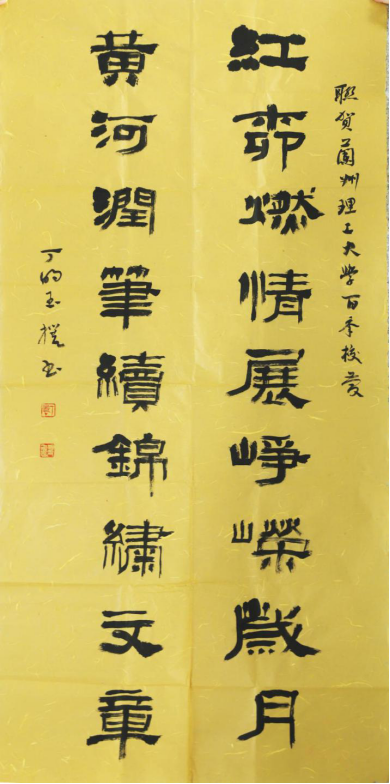 聯賀蘭州理工大學百年校慶
紅柳燃情展崢嶸歲月
黃河潤筆續錦繡文章
丁玉书